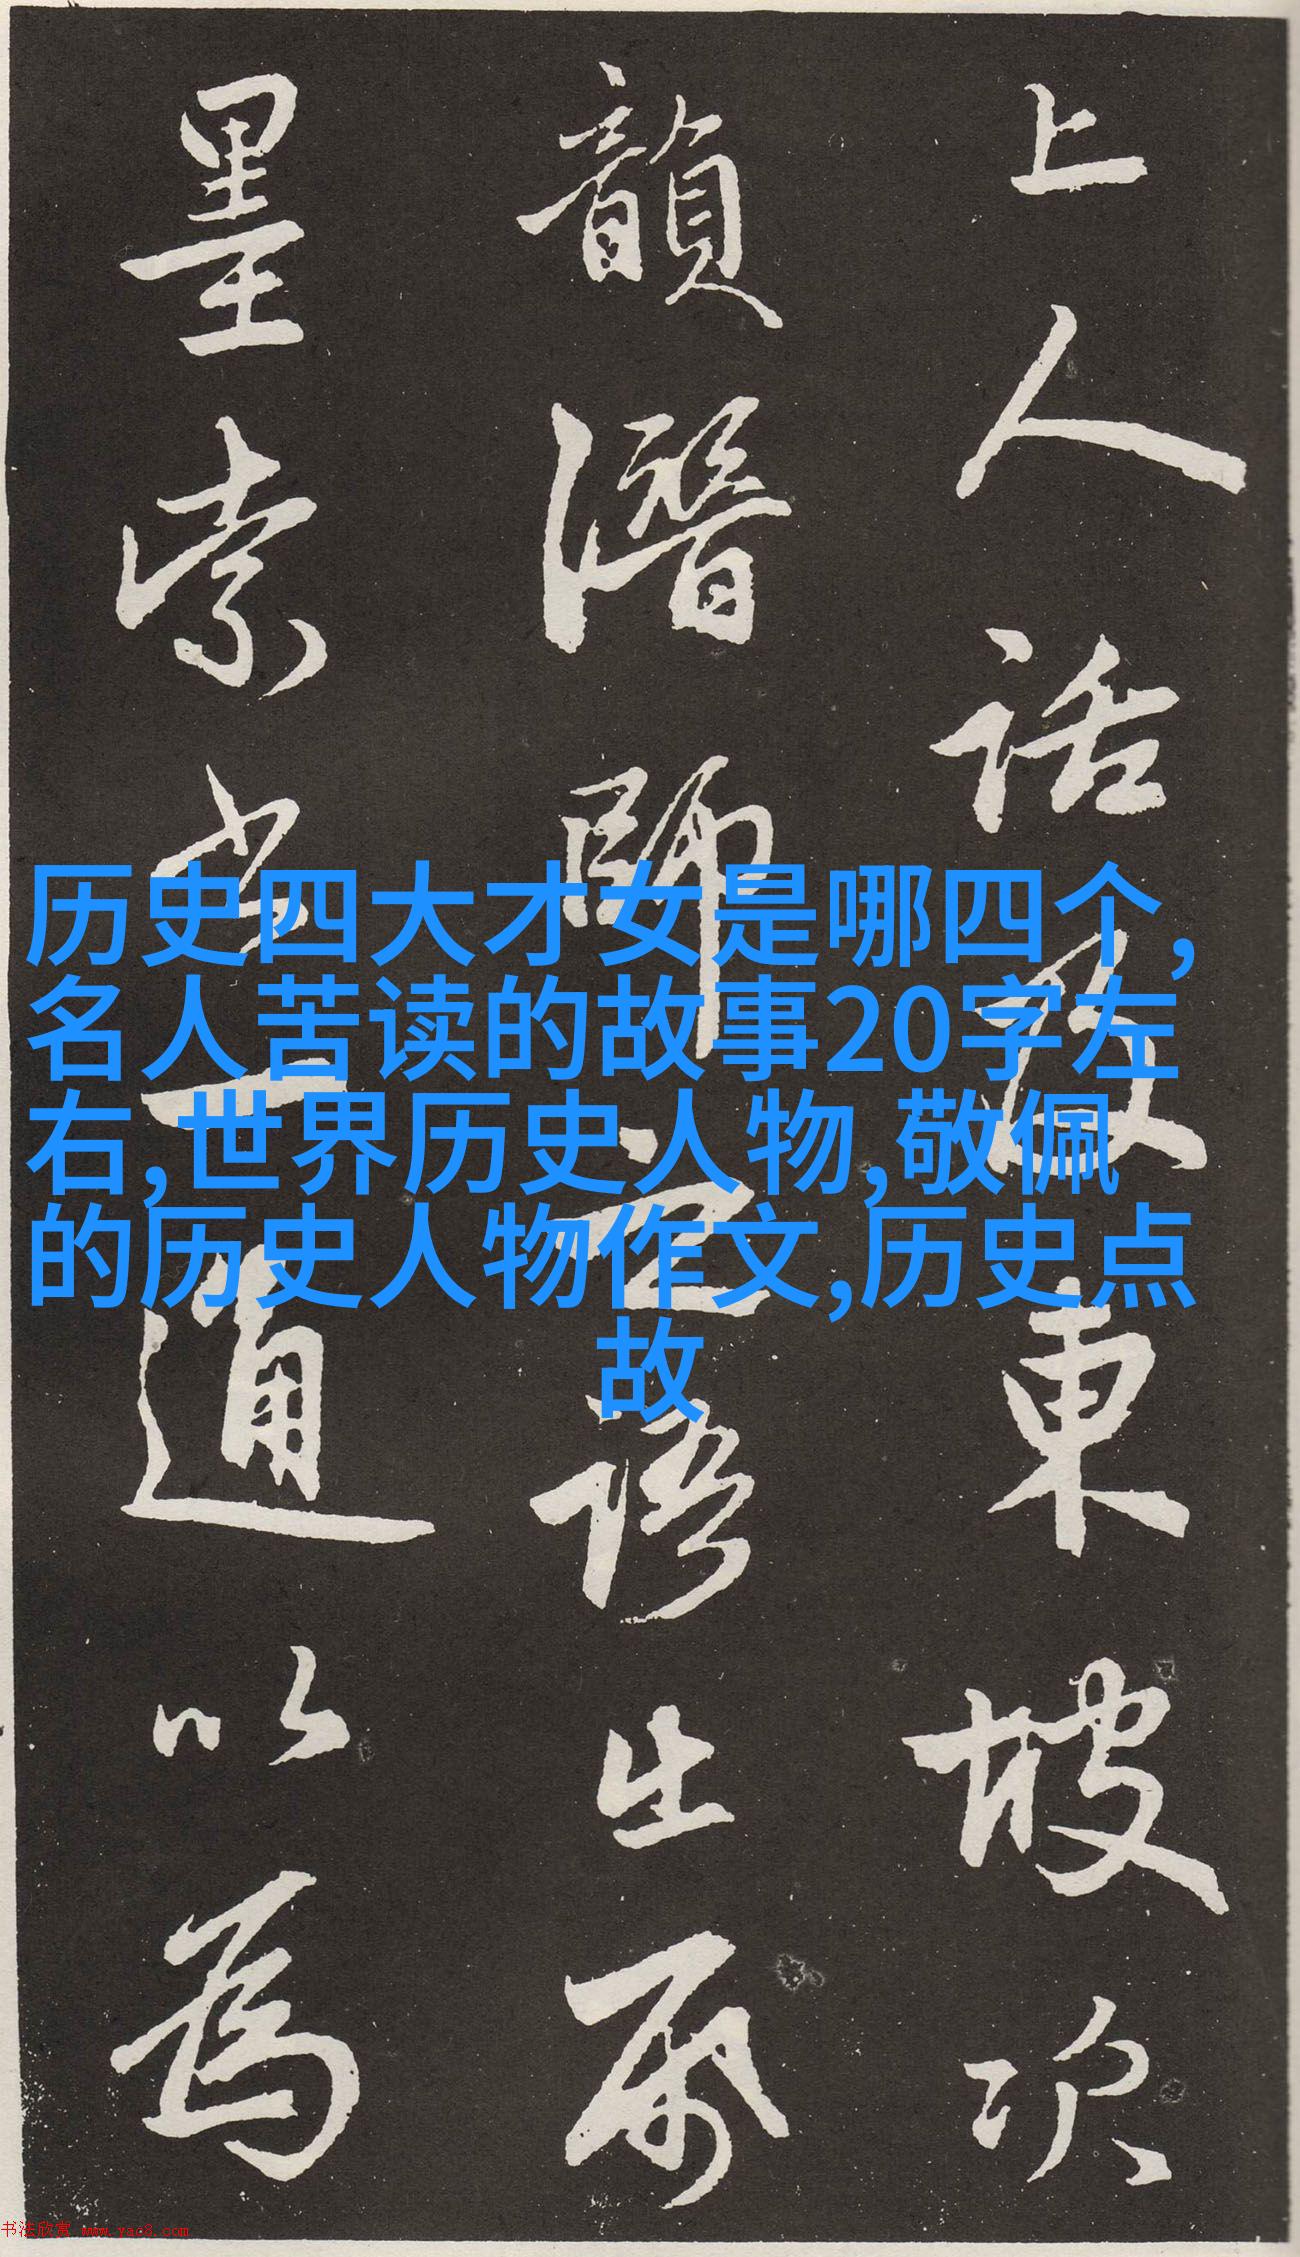 上人話及東坡次
韻潛師語出
墨索書一通以為
历史四大才女是哪四个,
名人苦读的故事20字左
右,世界历史人物,敬佩
的历史人物作文,历史点
故
书法欣赏 www.yac8.com